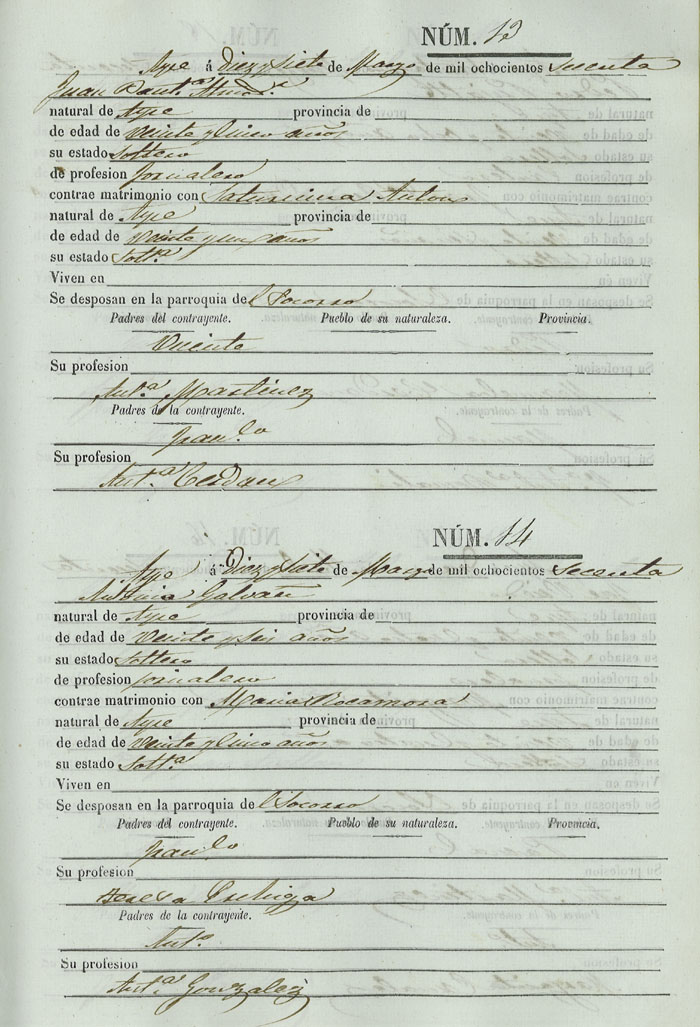 NÚM. 13
Aspe á Diez y siete de Marzo de mil ochocientos Secenta
Juan Baut.ª
natural de Aspe provincia de
de edad de veinte y cinco años
su estado Soltero
de profesion Jornalero
contrae matrimonio con Saturnina Anton
natural de Aspe provincia de
de edad de veinte y un años
su estado Solt.ª
Viven en
Se desposan en la parroquia del Socorro
Padres del contrayente. Pueblo de su naturaleza. Provincia.
Vicente
Su profesion
Ant.ª Martinez
Padres de la contrayente.
Fran.co
Su profesion
Ant.ª Cerdan
NÚM. 14
Aspe á Diez y siete de Marzo de mil ochocientos Secenta
Galvañ
natural de Aspe provincia de
de edad de veinte y seis años
su estado Soltero
de profesion Jornalero
contrae matrimonio con Maria Rocamora
natural de Aspe provincia de
de edad de veinte y cinco años
su estado Solt.ª
Viven en
Se desposan en la parroquia del Socorro
Padres del contrayente. Pueblo de su naturaleza. Provincia.
Fran.co
Su profesion
Padres de la contrayente.
Ant.º
Su profesion
Ant.ª Gonzalez